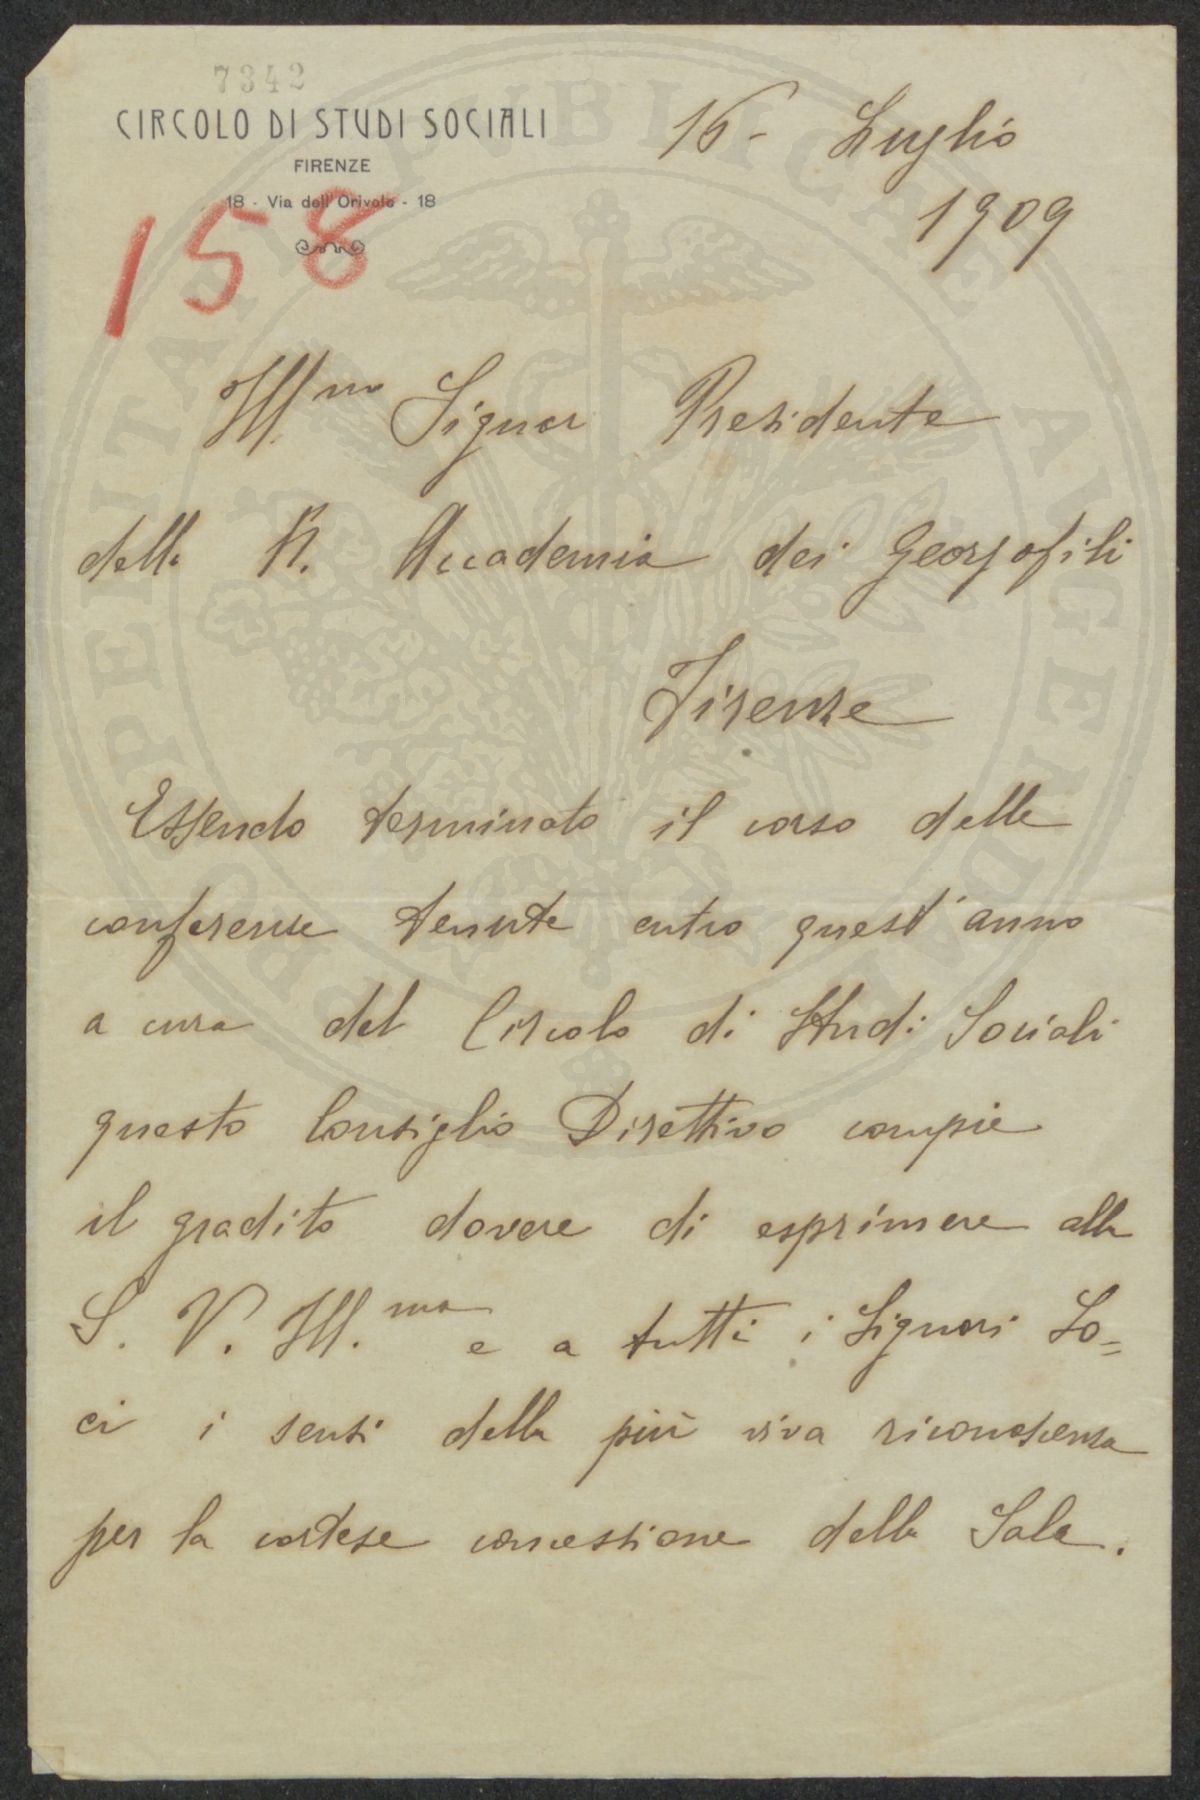 7342
CIRCOLO DI STUDI SOCIALI
FIRENZE
18 - Via dell'Orivolo - 18
158
16 - Luglio
1909
Ill.mo Signor Presidente
della R. Accademia dei Georgofili
Firenze
Essendo terminato il corso delle
conferenze tenute entro quest'anno
a cura del Circolo di Studi Sociali
questo Consiglio Direttivo compie
il gradito dovere di esprimere alla
S. V. Ill.ma e a tutti i Signori So=
ci i sensi della più viva riconoscenza
per la cortese concessione della Sala.
PROSPERITATI PUBLICAE AUGENDAE